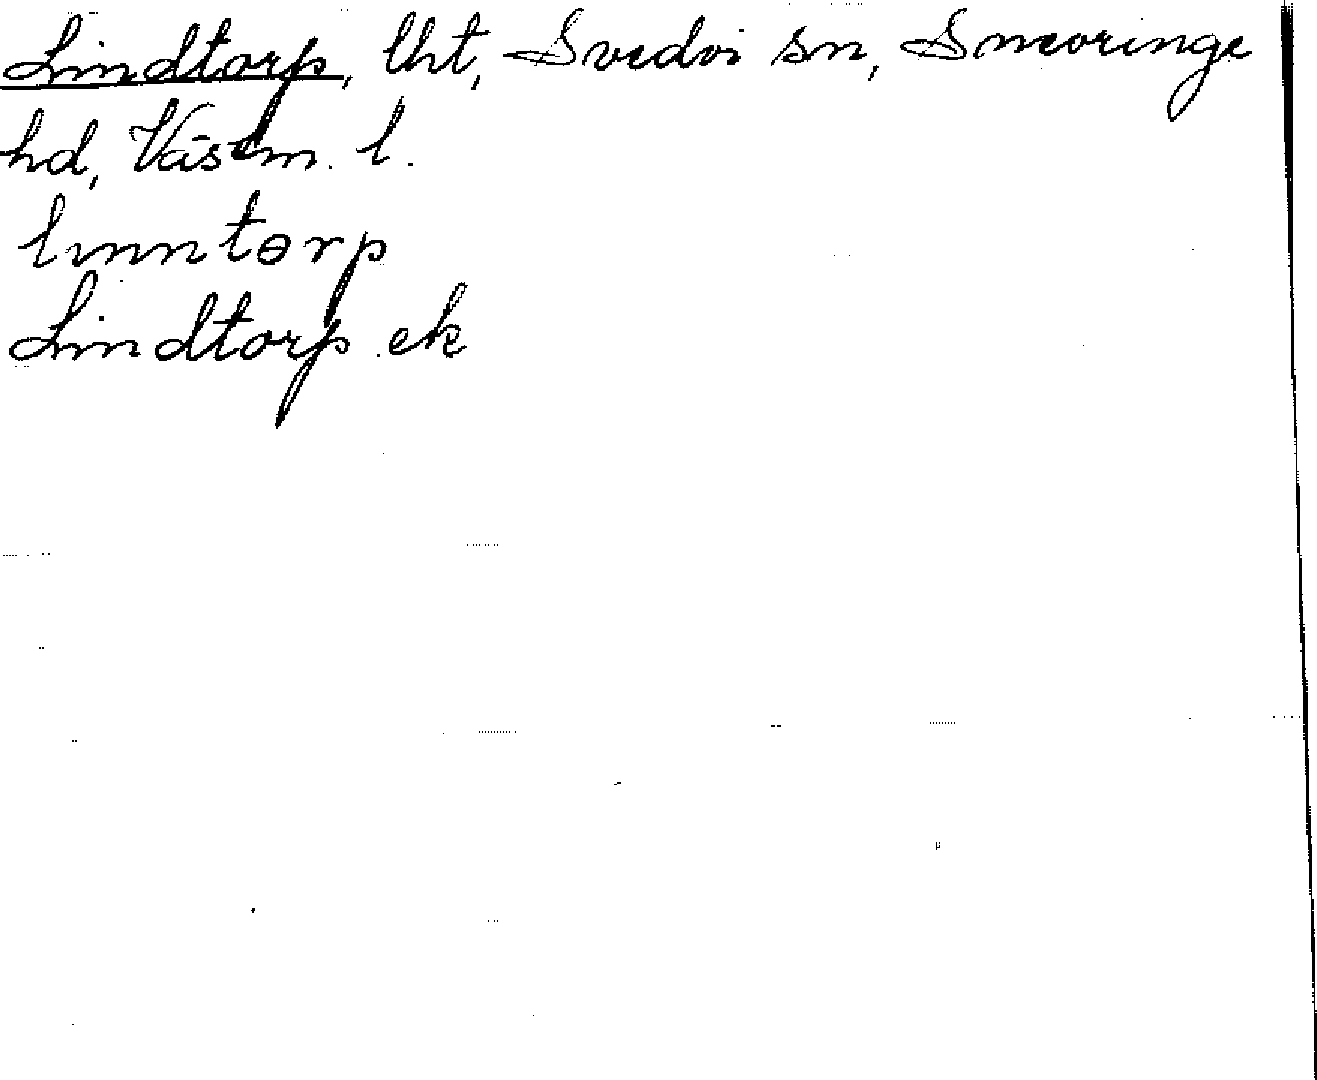 Lindtorp, lht, Svedvi sn, Snevringe
hd, Västm. l.
linntərp
Lindtorp ek